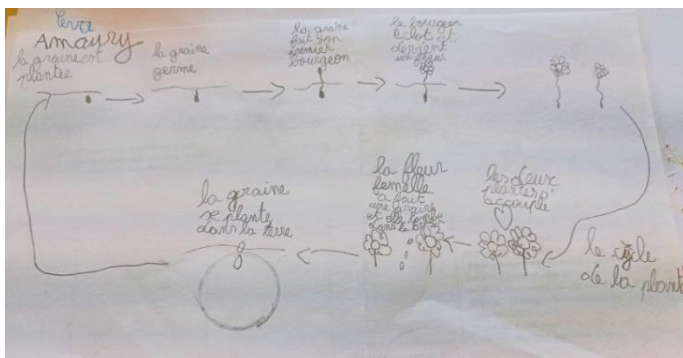 terra
Amaury
la graine est
plantée
la graine
germe
la graine
fait son
premier
bourgeon
le bourgeon
éclot et
devient
un fleur
les deux
plantes s'
accouple
la fleur
femelle
a fait
une graine
et elle tombe
dans la terre
la graine
se plante
dans la terre
le cycle
de la plante